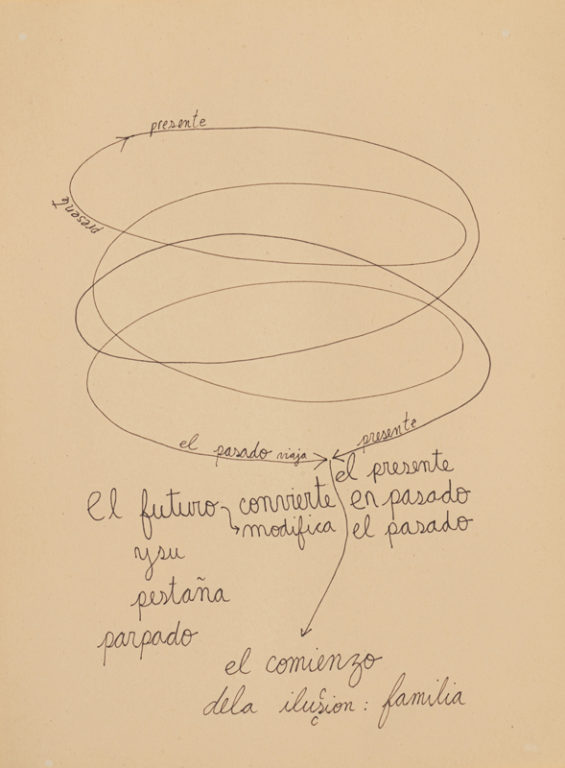 presente
presente
el pasado viaja
presente
el presente
El futuro convierte en pasado
modifica el pasado
y su
pestaña
parpado
el comienzo
dela ilusion : familia